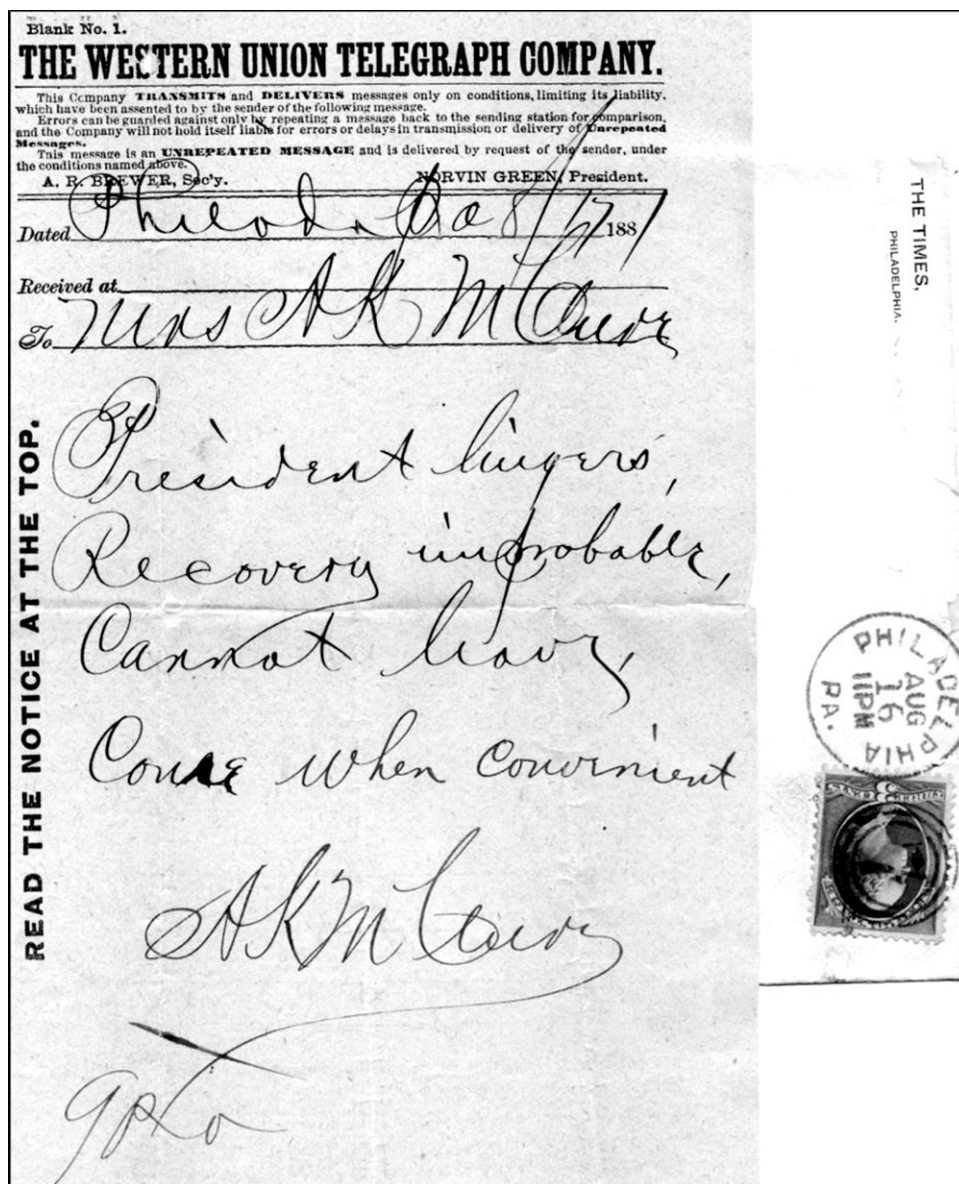 Blank No. 1.
THE WESTERN UNION TELEGRAPH COMPANY.
This Company TRANSMITS and DELIVERS messages only on conditions, limiting its liability,
which have been assented to by the sender of the following message.
Errors can be guarded against only by repeating a message back to the sending station for comparison,
and the Company will not hold itself liable for errors or delays in transmission or delivery of Unrepeated
Messages.
This message is an UNREPEATED MESSAGE and is delivered by request of the sender, under
the conditions named above.
A. R. BREWER, Sec'y. NORVIN GREEN, President.
Dated Philada Pa 8/17 1881
Received at
To Mrs A K McClure
READ THE NOTICE AT THE TOP.
President lingers,
Recovery improbable,
Cannot leave,
Come when convenient
A K McClure
THE TIMES,
PHILADELPHIA.
PHILADELPHIA
AUG
16
11PM
PA.